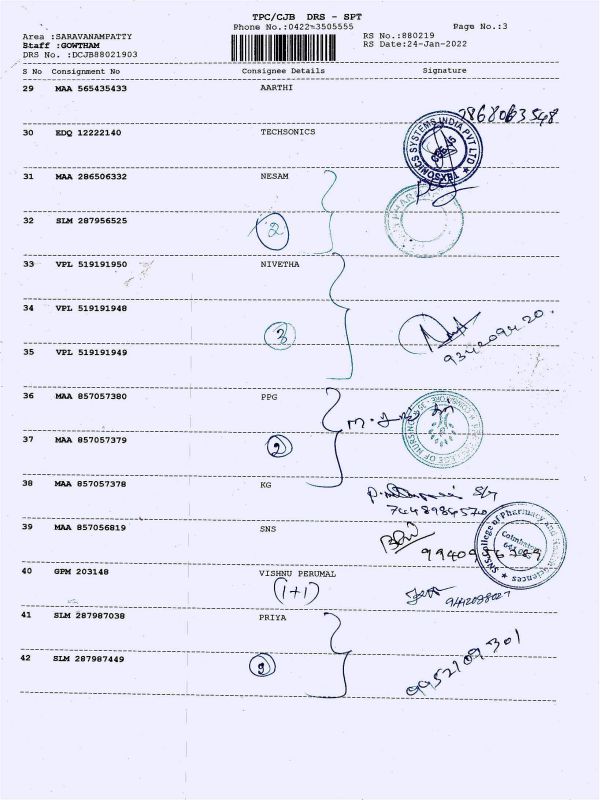 TPC/CJB DRS - SPT
Phone No.:0422-3505555 Page No.:3
Area :SARAVANAMPATTY RS No.:880219
Staff :GOWTHAM RS Date:24-Jan-2022
DRS No. :DCJB88021903
S No Consignment No Consignee Details Signature
29 MAA 565435433 AARTHI
30 EDQ 12222140 TECHSONICS
TEXSONICS SYSTEMS INDIA PVT LTD
31 MAA 286506332 NESAM
32 SLM 287956525
2
33 VPL 519191950 NIVETHA
34 VPL 519191948
3
9342094420.
35 VPL 519191949
36 MAA 857057380 PPG
COLLEGE OF NURSING
37 MAA 857057379
2
38 MAA 857057378 KG
39 MAA 857056819 SNS
SNS College of Pharmacy and Health Sciences
Coimbatore
40 GPM 203148 VISHNU PERUMAL
(1+1)
41 SLM 287987038 PRIYA
42 SLM 287987449
9952109301